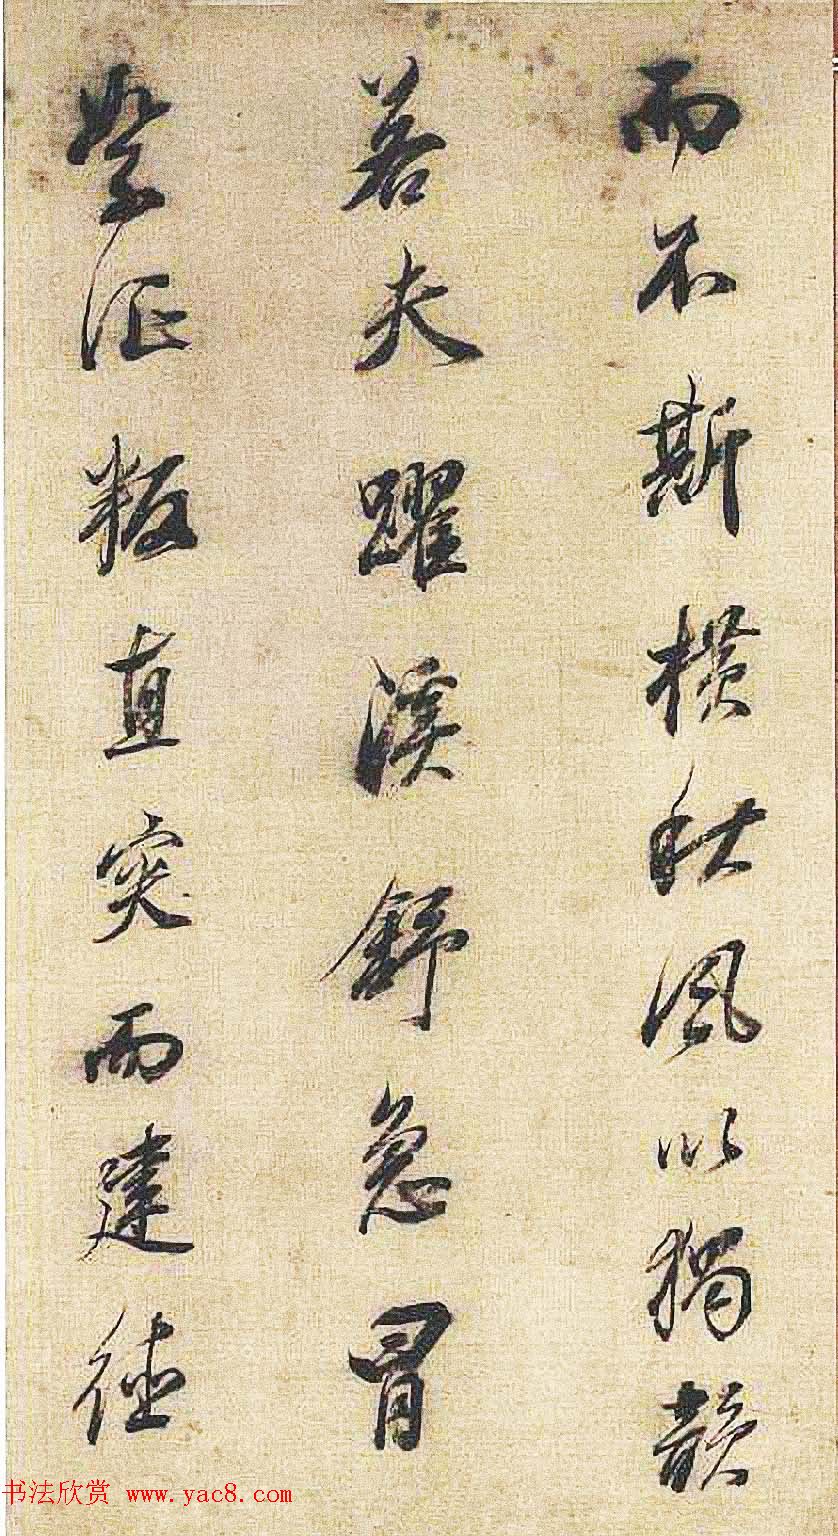 而不斯橫秋風以獨韻
若夫躍溪舒急冒
絮征叛直突而建德
书法欣赏 www.yac8.com